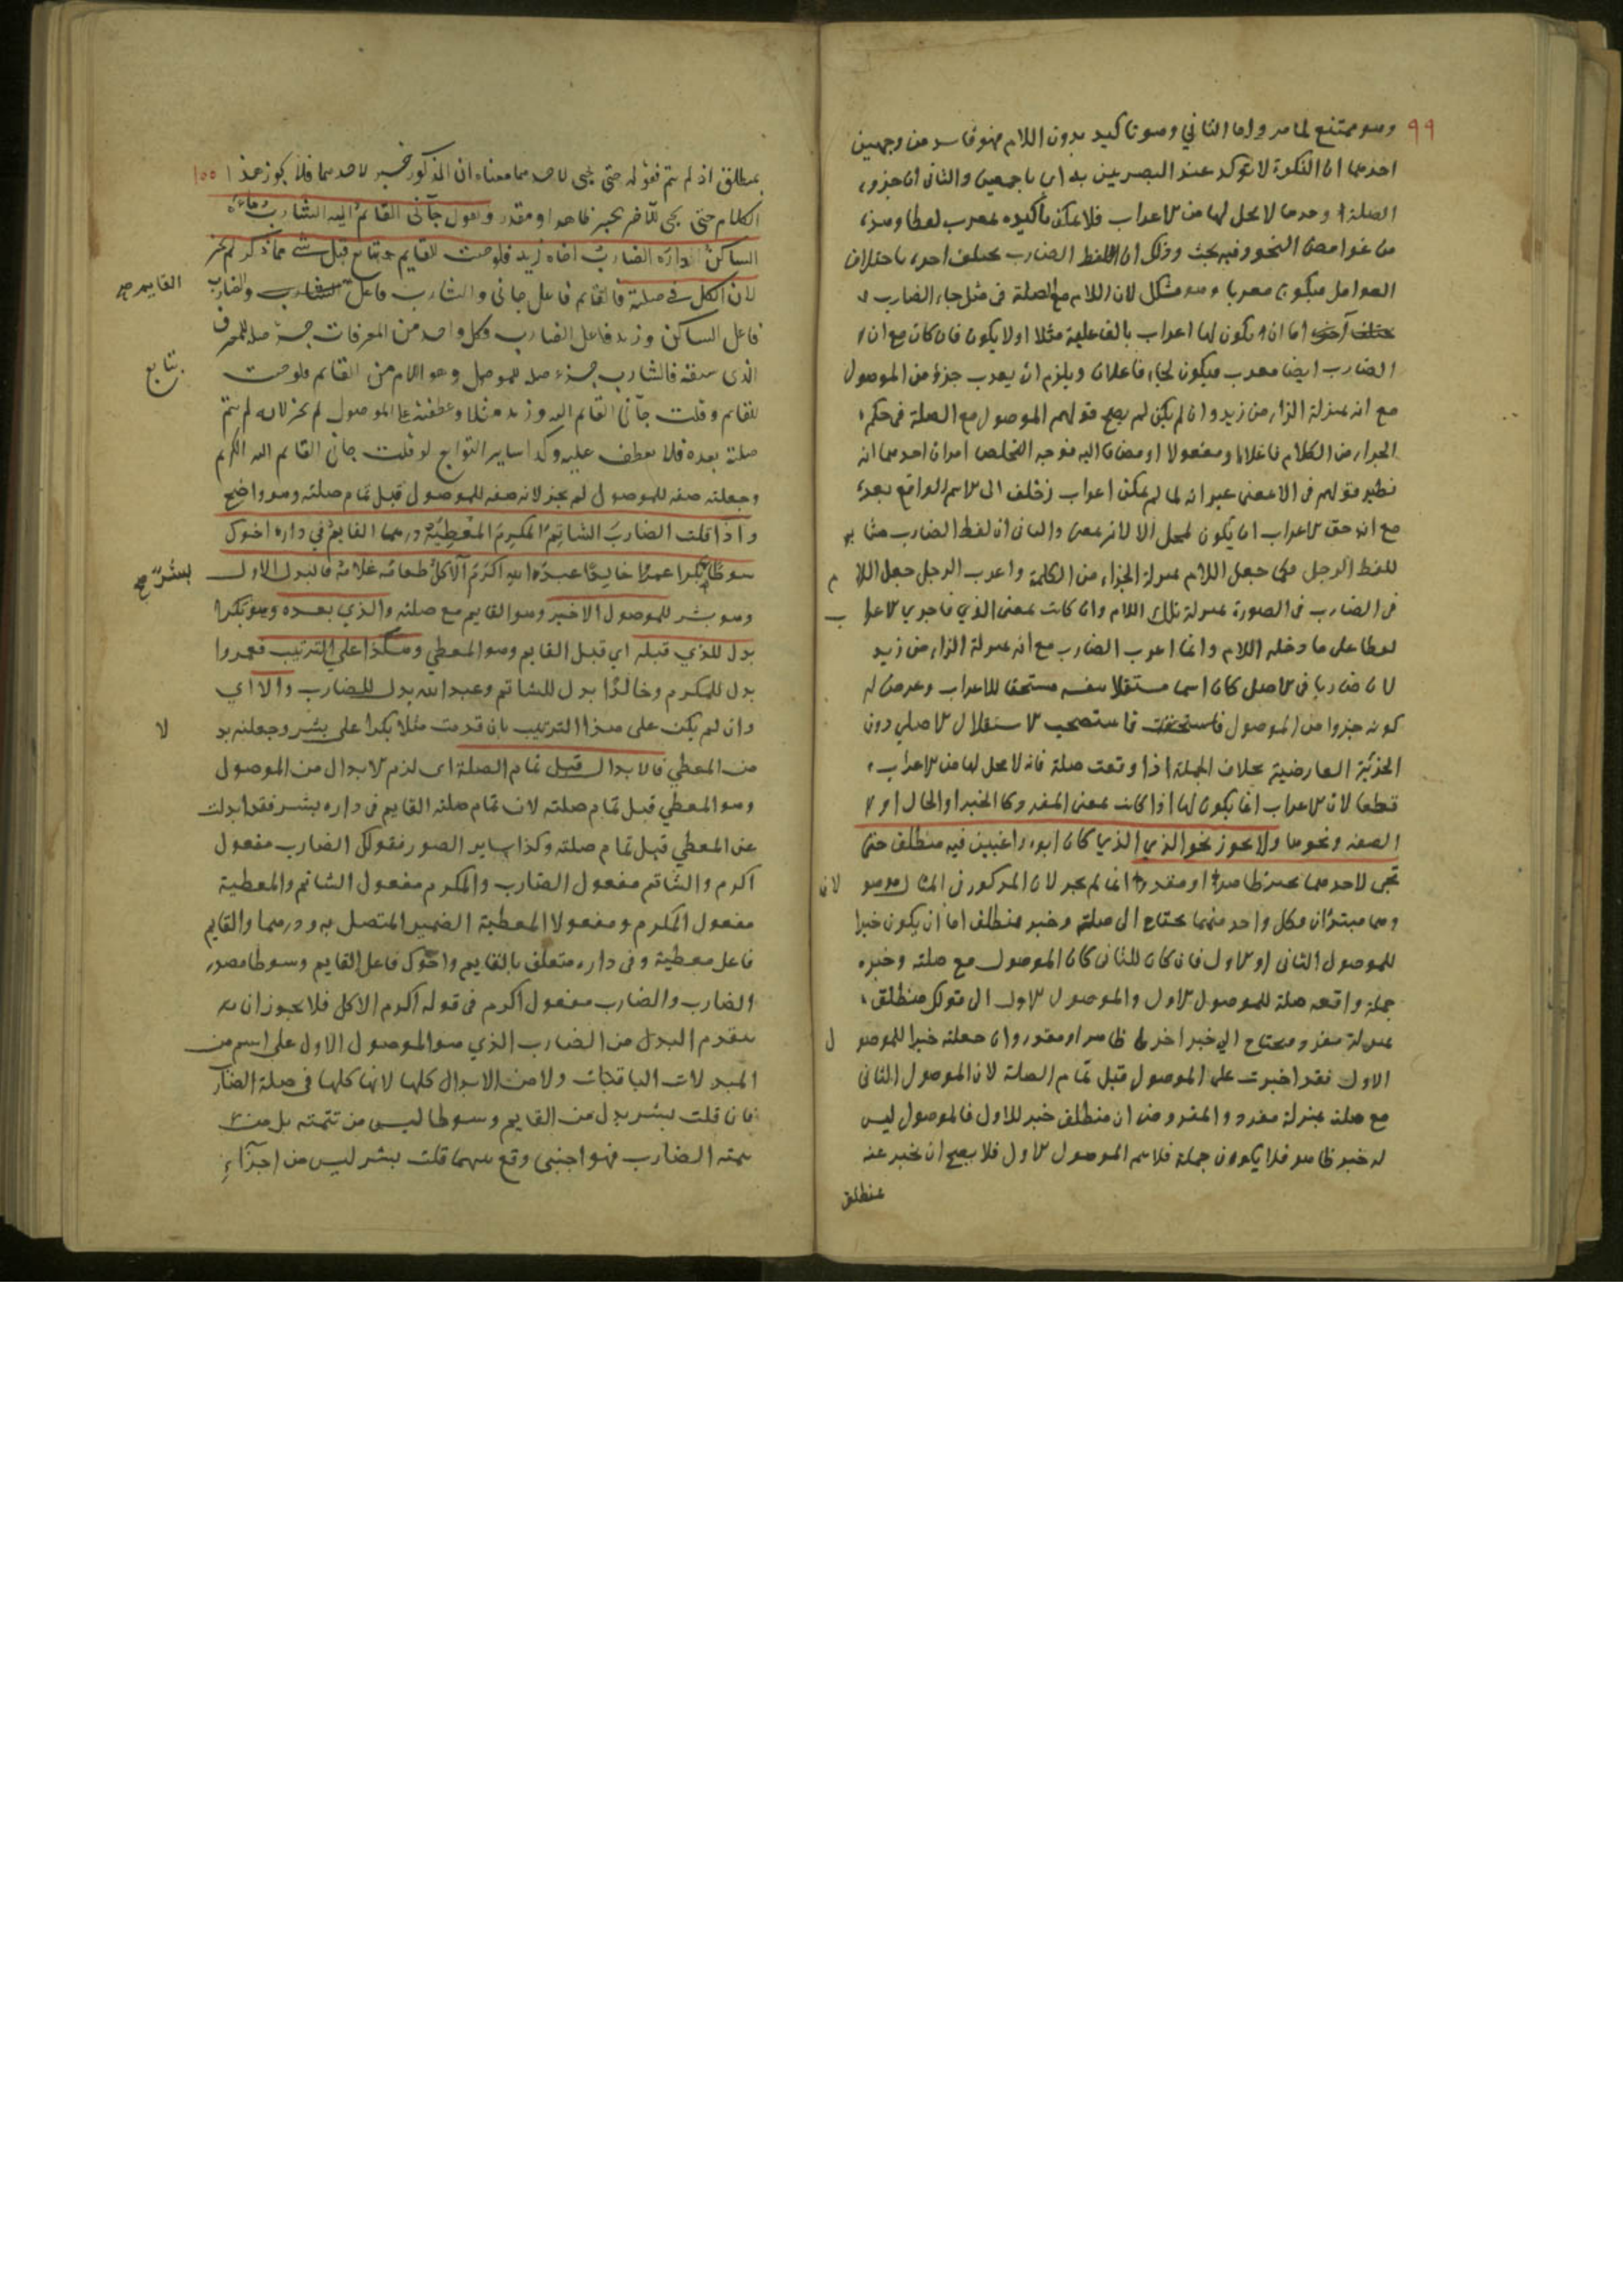 ٩٩
وهو ممتنع لما مر واما الثاني وهو تاكيد بدون اللام فهو فاسد من وجهين
احدهما ان النكرة لا توكد عند البصريين به اي باجمعين والثاني ان جزء
الصلة وحدها لا محل لها من الاعراب فلا يمكن تاكيده بمعرب لفظا وهذه
من غوامض النحو وفيه بحث وذلك ان لفظ الضارب يختلف اخره باختلاف
العوامل فيكون معربا وهو مشكل لان اللام مع الصلة في مثل جاء الضارب
اما ان يكون لها اعراب بالفاعلية مثلا او لا يكون فان كان مع ان
الضارب ايضا معرب فيكون لجاء فاعلان ويلزم ان يعرب جزؤ من الموصول
مع انه بمنزلة الزاء من زيد وان لم يكن لم يصح قولهم الموصول مع الصلة في حكم
الجزاء من الكلام فاعلا ومفعولا ومضافا اليه فوجه التخلص امران احدهما انه
نظير قولهم في الا بمعنى غير انه لما لم يمكن اعراب تخلف الى الاسم الواقع بعده
مع انه حق الاعراب ان يكون لمحل الا لانه بمعنى والثاني ان لفظ الضارب مشابه
للفظ الرجل فكما جعل اللام بمنزلة الجزاء من الكلمة واعرب الرجل جعل اللام
في الضارب في الصورة بمنزلة تلك اللام وان كانت بمعنى الذي فاجري الاعراب
لفظا على ما دخله اللام وانما اعرب الضارب مع انه بمنزلة الزاء من زيد
لان ضاربا في الاصل كان اسما مستقلا بنفسه مستحقا للاعراب وعرض له
كونه جزوا من الموصول فاستصحب الاستقلال الاصلي دون
الجزئية العارضية بخلاف الجملة اذا وقعت صلة فانه لا محل لها من الاعراب
قطعا لان الاعراب انما يكون لها اذا كانت بمعنى المفرد كالخبر او الحال او
الصفة ونحوها ولا يجوز نحو الذي الذي كان ابوه راغبين فيه منطلق حتى
تجى لاحدهما بخبر ظاهرا او مقدرا انما لم يجز لان المذكور في المثال موصولان
وهما مبتدءان وكل واحد منهما يحتاج الى صلة وخبر فمنطلق اما ان يكون خبرا
للموصول الثاني او الاول فان كان للثاني كان الموصول مع صلته وخبره
جملة واقعة صلة للموصول الاول والموصول الاول الى قولك منطلق
بمنزلة مفرد محتاج الى خبر اخر ظاهر او مقدر وان جعلته خبرا للموصول
الاول فقد اخبرت على الموصول قبل تمام الصلة لان الموصول الثاني
مع صلته بمنزلة مفرد والمفروض ان منطلق خبر للاول فالموصول ليس
له خبر ظاهر فلا يكون جملة فلا يتم الموصول الاول فلا يصح ان يخبر عنه
بمنطلق
١٠٠
بمنطلق اذ لم يتم فقوله حتى تجى لاحدهما معناه ان المذكور خبر لاحدهما فلا يكون هذا
الكلام حتى تجى للآخر بخبر ظاهرا او مقدر وتقول جآنى القائم اليه الشارب ماءه
الساكن داره الضارب اخاه زيد فلو جئت للقايم بتابع قبل شي مما ذكر لم يجز
لان الكل في صلته فالقائم فاعل جانى والشارب فاعل القايم والضارب
فاعل الساكن وزيد فاعل الضارب وكل واحد من المعرفات جزء صلة للمعرف
الذي سبقه فالشارب جزء صلة للموصول وهو اللام من القائم فلو جئت بتابع
للقائم وقلت جآنى القائم اليه وزيد مثلا وعطفته على الموصول لم يجز لانه لم يتم
صلته بعده فلا يعطف عليه وكذا ساير التوابع لو قلت جانى القائم اليه الكريم
وجعلته صفة للموصول لم يجز لانه صفة للموصول قبل تمام صلته وهو واضح
واذا قلت الضارب الشاتم المكرم المعطية درهما القايم في داره اخوك
سوطا بكرا عمرا خالدا عبد الله اكرم الآكل طعامه غلامه فالبدل الاول
وهو بشر للموصول الاخير وهو القايم مع صلته والذي بعده وهو بكرا
بدل للذي قبله اي قبل القايم وهو المعطي وهكذا على الترتيب فعمروا
بدل للمكرم وخالدا بدل للشاتم وعبد الله بدل للضارب والا اي
وان لم يكن على هذا الترتيب بان قدمت مثلا بكرا على بشر وجعلته بدلا
من المعطي فالابدال قبل تمام الصلة اى لزم الابدال من الموصول
وهو المعطي قبل تمام صلته لان تمام صلته القايم في داره بشر فقد ابدلت
عن المعطي قبل تمام صلته وكذا ساير الصور فقولك الضارب مفعول
اكرم والشاتم مفعول الضارب والمكرم مفعول الشاتم والمعطية
مفعول المكرم ومفعولا المعطية الضمير المتصل به ودرهما والقايم
فاعل معطية وفي داره متعلق بالقايم واخوك فاعل القايم وسوطا مصدر
الضارب والضارب مفعول اكرم في قوله اكرم الاكل فلا يجوز ان
يتقدم البدل من الضارب الذي هو الموصول الاول على اسم من
المبدلات الباقيات ولا من الابدال كلها لانها كلها في صلة الضارب
فان قلت بشر بدل من القايم وسوطا ليس من تتمته بل من
تتمة الضارب فهو اجنبي وقع بينهما قلت بشر ليس من اجزآء